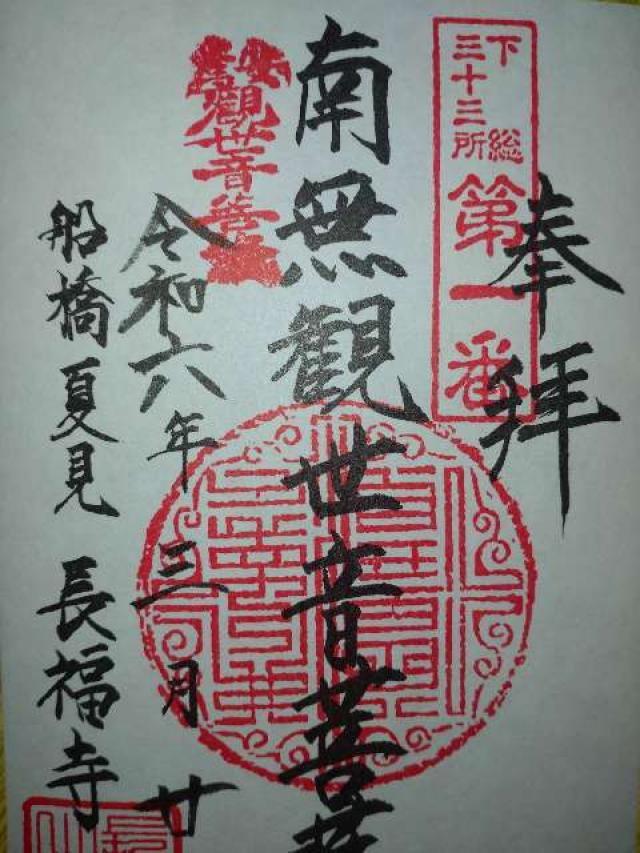 奉拝
下総
三十三所
第一番
南無観世音菩
觀世音菩
令和六年三月廿
船橋夏見 長福寺